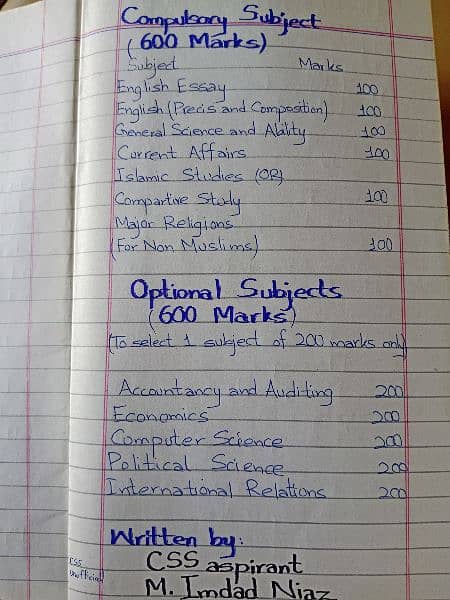 Compulsory Subject
(600 Marks)
Subject Marks
English Essay 100
English (Precis and Composition) 100
General Science and Ability 100
Current Affairs 100
Islamic Studies (OR)
Compartive Study 100
Major Religions
(For Non Muslims) 100
Optional Subjects
(600 Marks)
(To select 1 subject of 200 marks only)
Accountancy and Auditing 200
Economics 200
Computer Science 200
Political Science 200
International Relations 200
Written by:
CSS aspirant
M. Imdad Niaz
CSS
unofficial